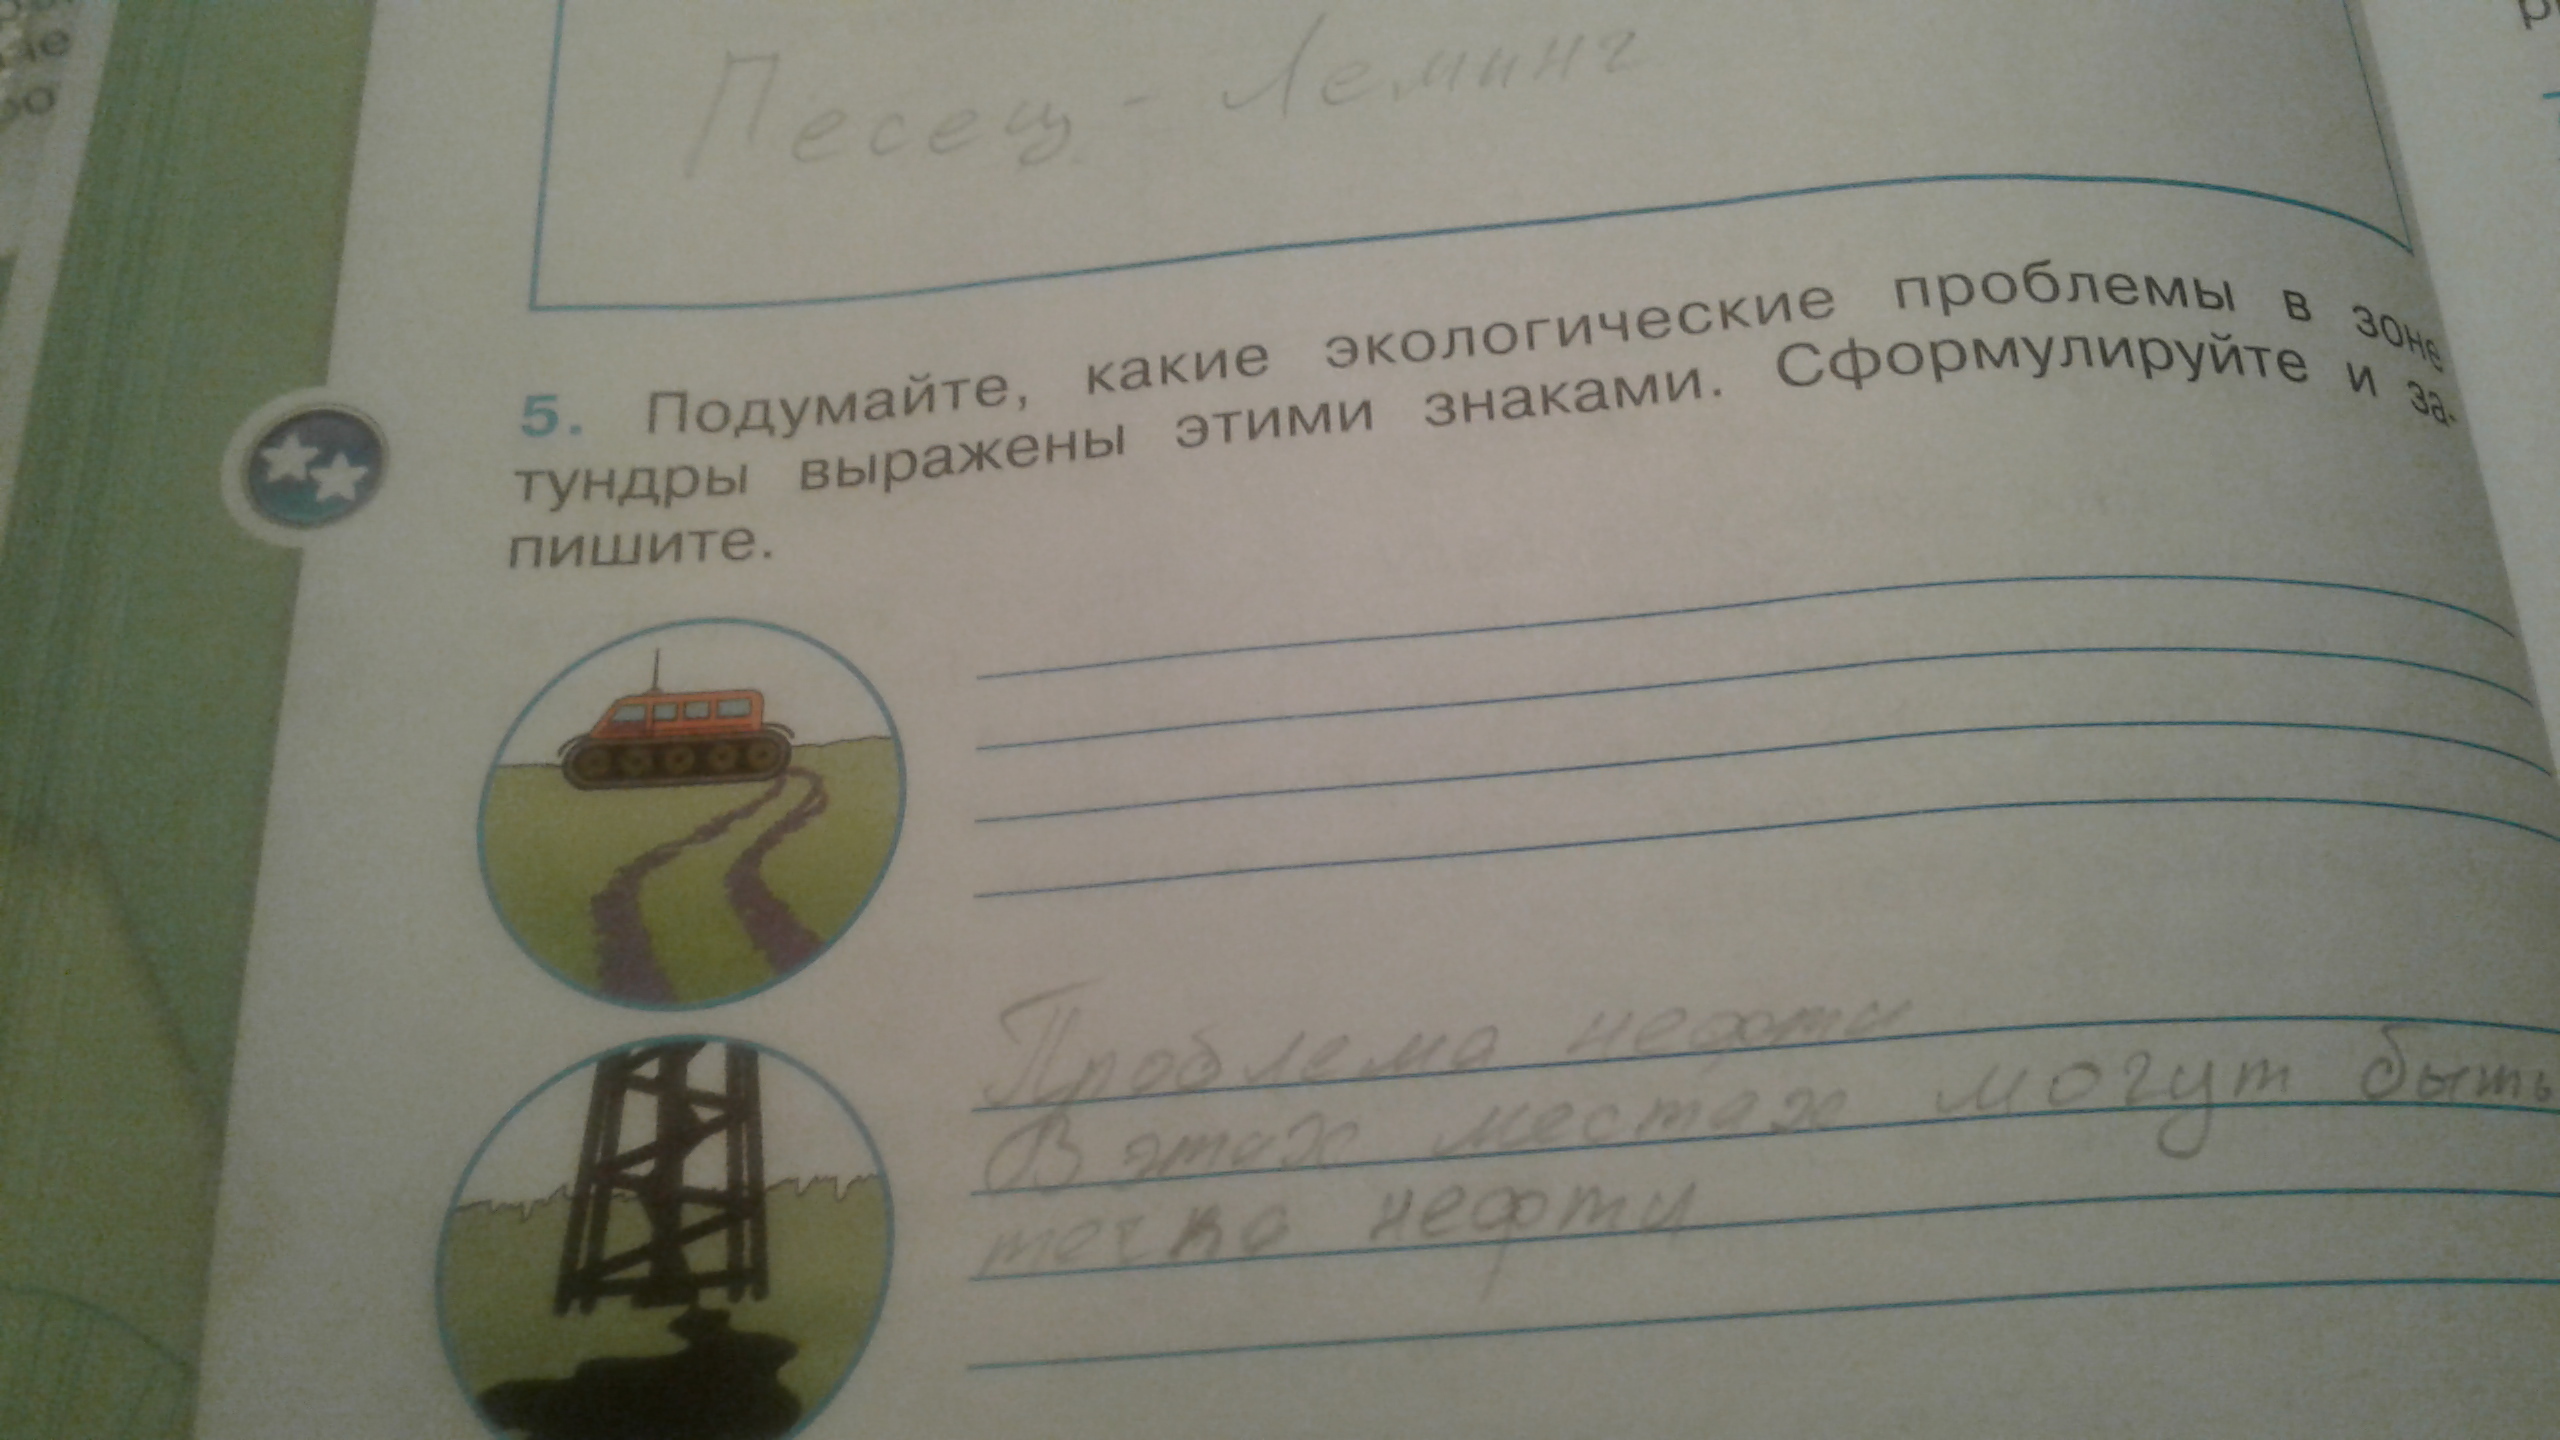 не
ро
Песец - Леминг
5. Подумайте, какие экологические проблемы в зоне
тундры выражены этими знаками. Сформулируйте и за-
пишите.
Проблема нефти
В этих местах могут быть
течка нефти